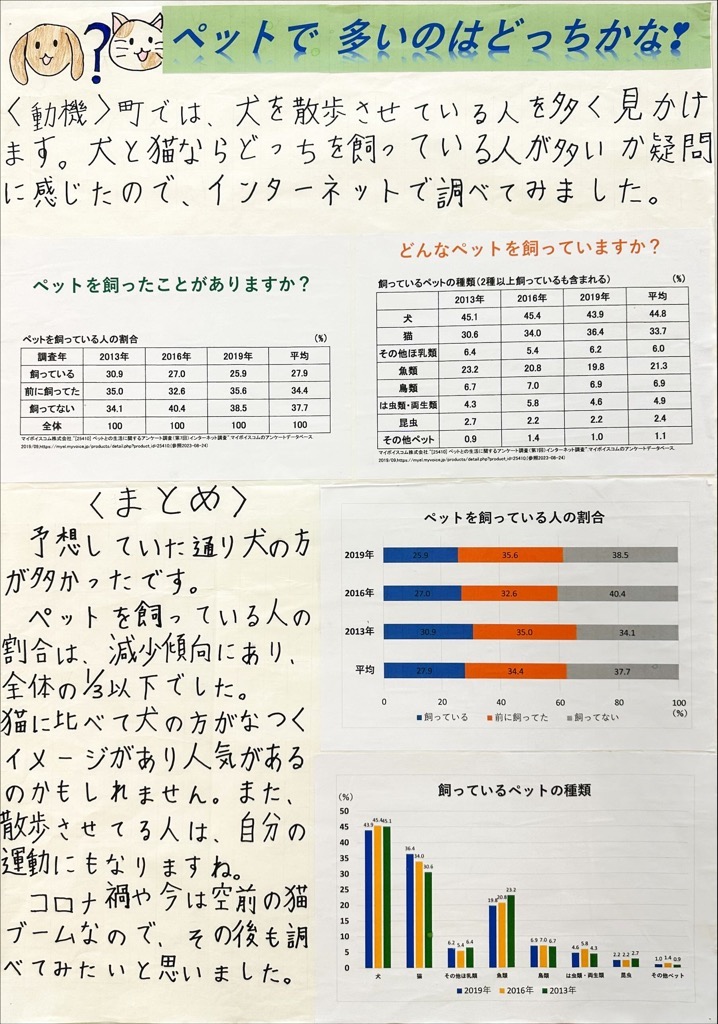 ?
ペットで 多いのはどっちかな❣
〈動機〉町では、犬を散歩させている人を多く見かけ
ます。犬と猫ならどっちを飼っている人が多いか疑問
に感じたので、インターネットで調べてみました。
ペットを飼ったことがありますか？
ペットを飼っている人の割合 (%)
調査年 2013年 2016年 2019年 平均
飼っている 30.9 27.0 25.9 27.9
前に飼ってた 35.0 32.6 35.6 34.4
飼ってない 34.1 40.4 38.5 37.7
全体 100 100 100 100
マイボイスコム株式会社."[25410] ペットとの生活に関するアンケート調査(第7回)インターネット調査".マイボイスコムのアンケートデータベース.
2019/09,https://myel.myvoice.jp/products/detail.php?product_id=25410,(参照2023-08-24)
どんなペットを飼っていますか？
飼っているペットの種類(2種以上飼っているも含まれる) (%)
2013年 2016年 2019年 平均
犬 45.1 45.4 43.9 44.8
猫 30.6 34.0 36.4 33.7
その他ほ乳類 6.4 5.4 6.2 6.0
魚類 23.2 20.8 19.8 21.3
鳥類 6.7 7.0 6.9 6.9
は虫類・両生類 4.3 5.8 4.6 4.9
昆虫 2.7 2.2 2.2 2.4
その他ペット 0.9 1.4 1.0 1.1
マイボイスコム株式会社."[25410] ペットとの生活に関するアンケート調査(第7回)インターネット調査".マイボイスコムのアンケートデータベース.
2019/09,https://myel.myvoice.jp/products/detail.php?product_id=25410,(参照2023-08-24)
〈まとめ〉
予想していた通り犬の方
が多かったです。
ペットを飼っている人の
割合は、減少傾向にあり、
全体の1/3以下でした。
猫に比べて犬の方がなつく
イメージがあり人気がある
のかもしれません。また、
散歩させてる人は、自分の
運動にもなりますね。
コロナ禍や今は空前の猫
ブームなので、その後も調
べてみたいと思いました。
ペットを飼っている人の割合
2019年 25.9 35.6 38.5
2016年 27.0 32.6 40.4
2013年 30.9 35.0 34.1
平均 27.9 34.4 37.7
0 20 40 60 80 100
(%)
■飼っている ■前に飼ってた ■飼ってない
飼っているペットの種類
(%)
50
45
40
35
30
25
20
15
10
5
0
43.9 45.4 45.1
36.4 34.0 30.6
6.2 5.4 6.4
19.8 20.8 23.2
6.9 7.0 6.7
4.6 5.8 4.3
2.2 2.2 2.7
1.0 1.4 0.9
犬 猫 その他ほ乳類 魚類 鳥類 は虫類・両生類 昆虫 その他ペット
■2019年 ■2016年 ■2013年